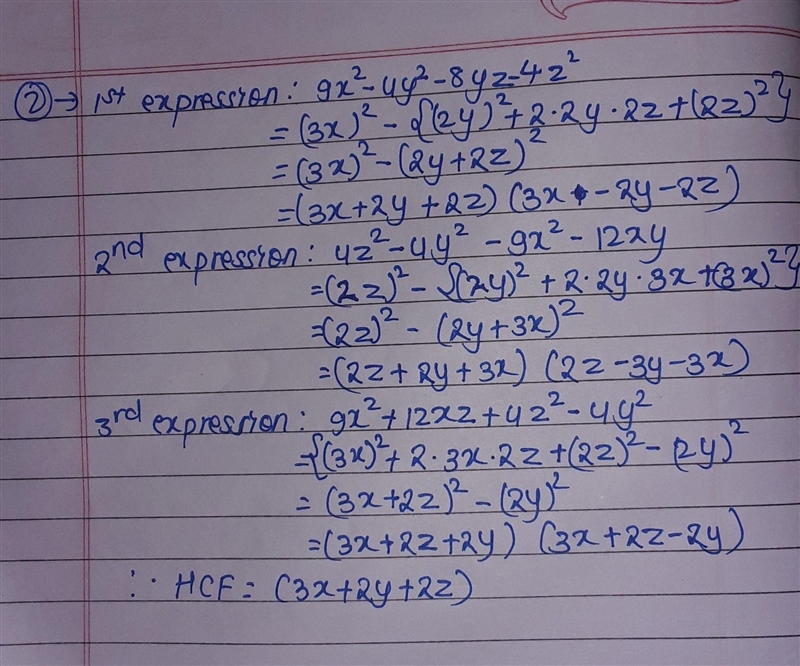 ② → 1st expression: 9x² - 4y² - 8yz - 4z²
= (3x)² - {(2y)² + 2·2y·2z + (2z)²}
= (3x)² - (2y + 2z)²
= (3x + 2y + 2z) (3x - 2y - 2z)
2nd expression: 4z² - 4y² - 9x² - 12xy
= (2z)² - {(2y)² + 2·2y·3x + (3x)²}
= (2z)² - (2y + 3x)²
= (2z + 2y + 3x) (2z - 3y - 3x)
3rd expression: 9x² + 12xz + 4z² - 4y²
= {(3x)² + 2·3x·2z + (2z)² - (2y)²
= (3x + 2z)² - (2y)²
= (3x + 2z + 2y) (3x + 2z - 2y)
∴ HCF = (3x + 2y + 2z)